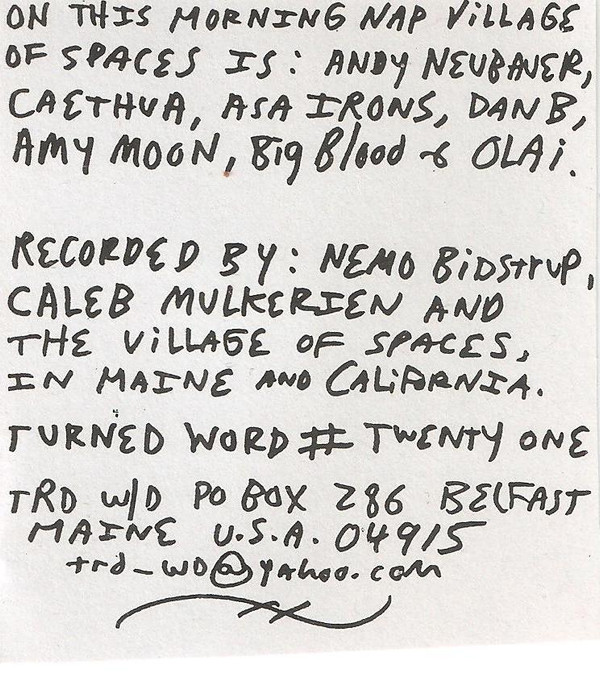 ON THIS MORNING NAP VILLAGE
OF SPACES IS: ANDY NEUBAUER,
CAETHUA, ASA IRONS, DAN B,
AMY MOON, Big Blood & OLAi.
RECORDED BY: NEMO BIDSTrUP,
CALEB MULKERIEN AND
THE VILLAGE OF SPACES,
IN MAINE AND CALIFORNIA.
TURNED WORD # TWENTY ONE
TRD W/D PO BOX 286 BELFAST
MAINE U.S.A. 04915
trd_wd@yahoo.com